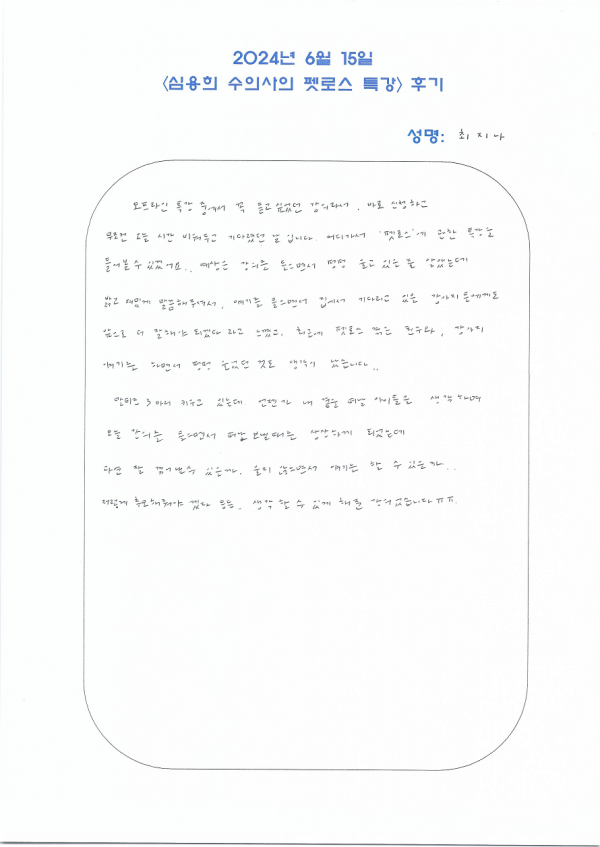 2024년 6월 15일
<심용희 수의사의 펫로스 특강> 후기
성명: 최지나
오프라인 특강 중에서 꼭 듣고 싶었던 강의라서, 바로 신청하고
무조건 오늘 시간 비워두고 기다렸던 날 입니다. 어디가서 '펫로스'에 관한 특강을
들어볼 수 있겠어요.. 예상은 강의를 들으면서 펑펑 울고 있을 줄 알았는데
밝고 재밌게 말씀해주셔서, 얘기를 들으면서 집에서 기다리고 있을 강아지들에게도
앞으로 더 잘해야 되겠다 라고 느꼈고, 최근에 펫로스 겪은 친구와, 강아지
얘기를 하면서 펑펑 울었던 것도 생각이 났습니다..
말티즈 3마리 키우고 있는데 언젠가 내 곁을 떠날 아이들을 생각하며
오늘 강의를 들으면서 떠나보낼때를 상상하게 되었는데
과연 잘 견뎌낼수 있을까. 울지 않으면서 얘기를 할 수 있을까..
저렇게 추모해줘야 겠다 등등, 생각 할 수 있게 해준 강의였습니다ㅠㅠ.